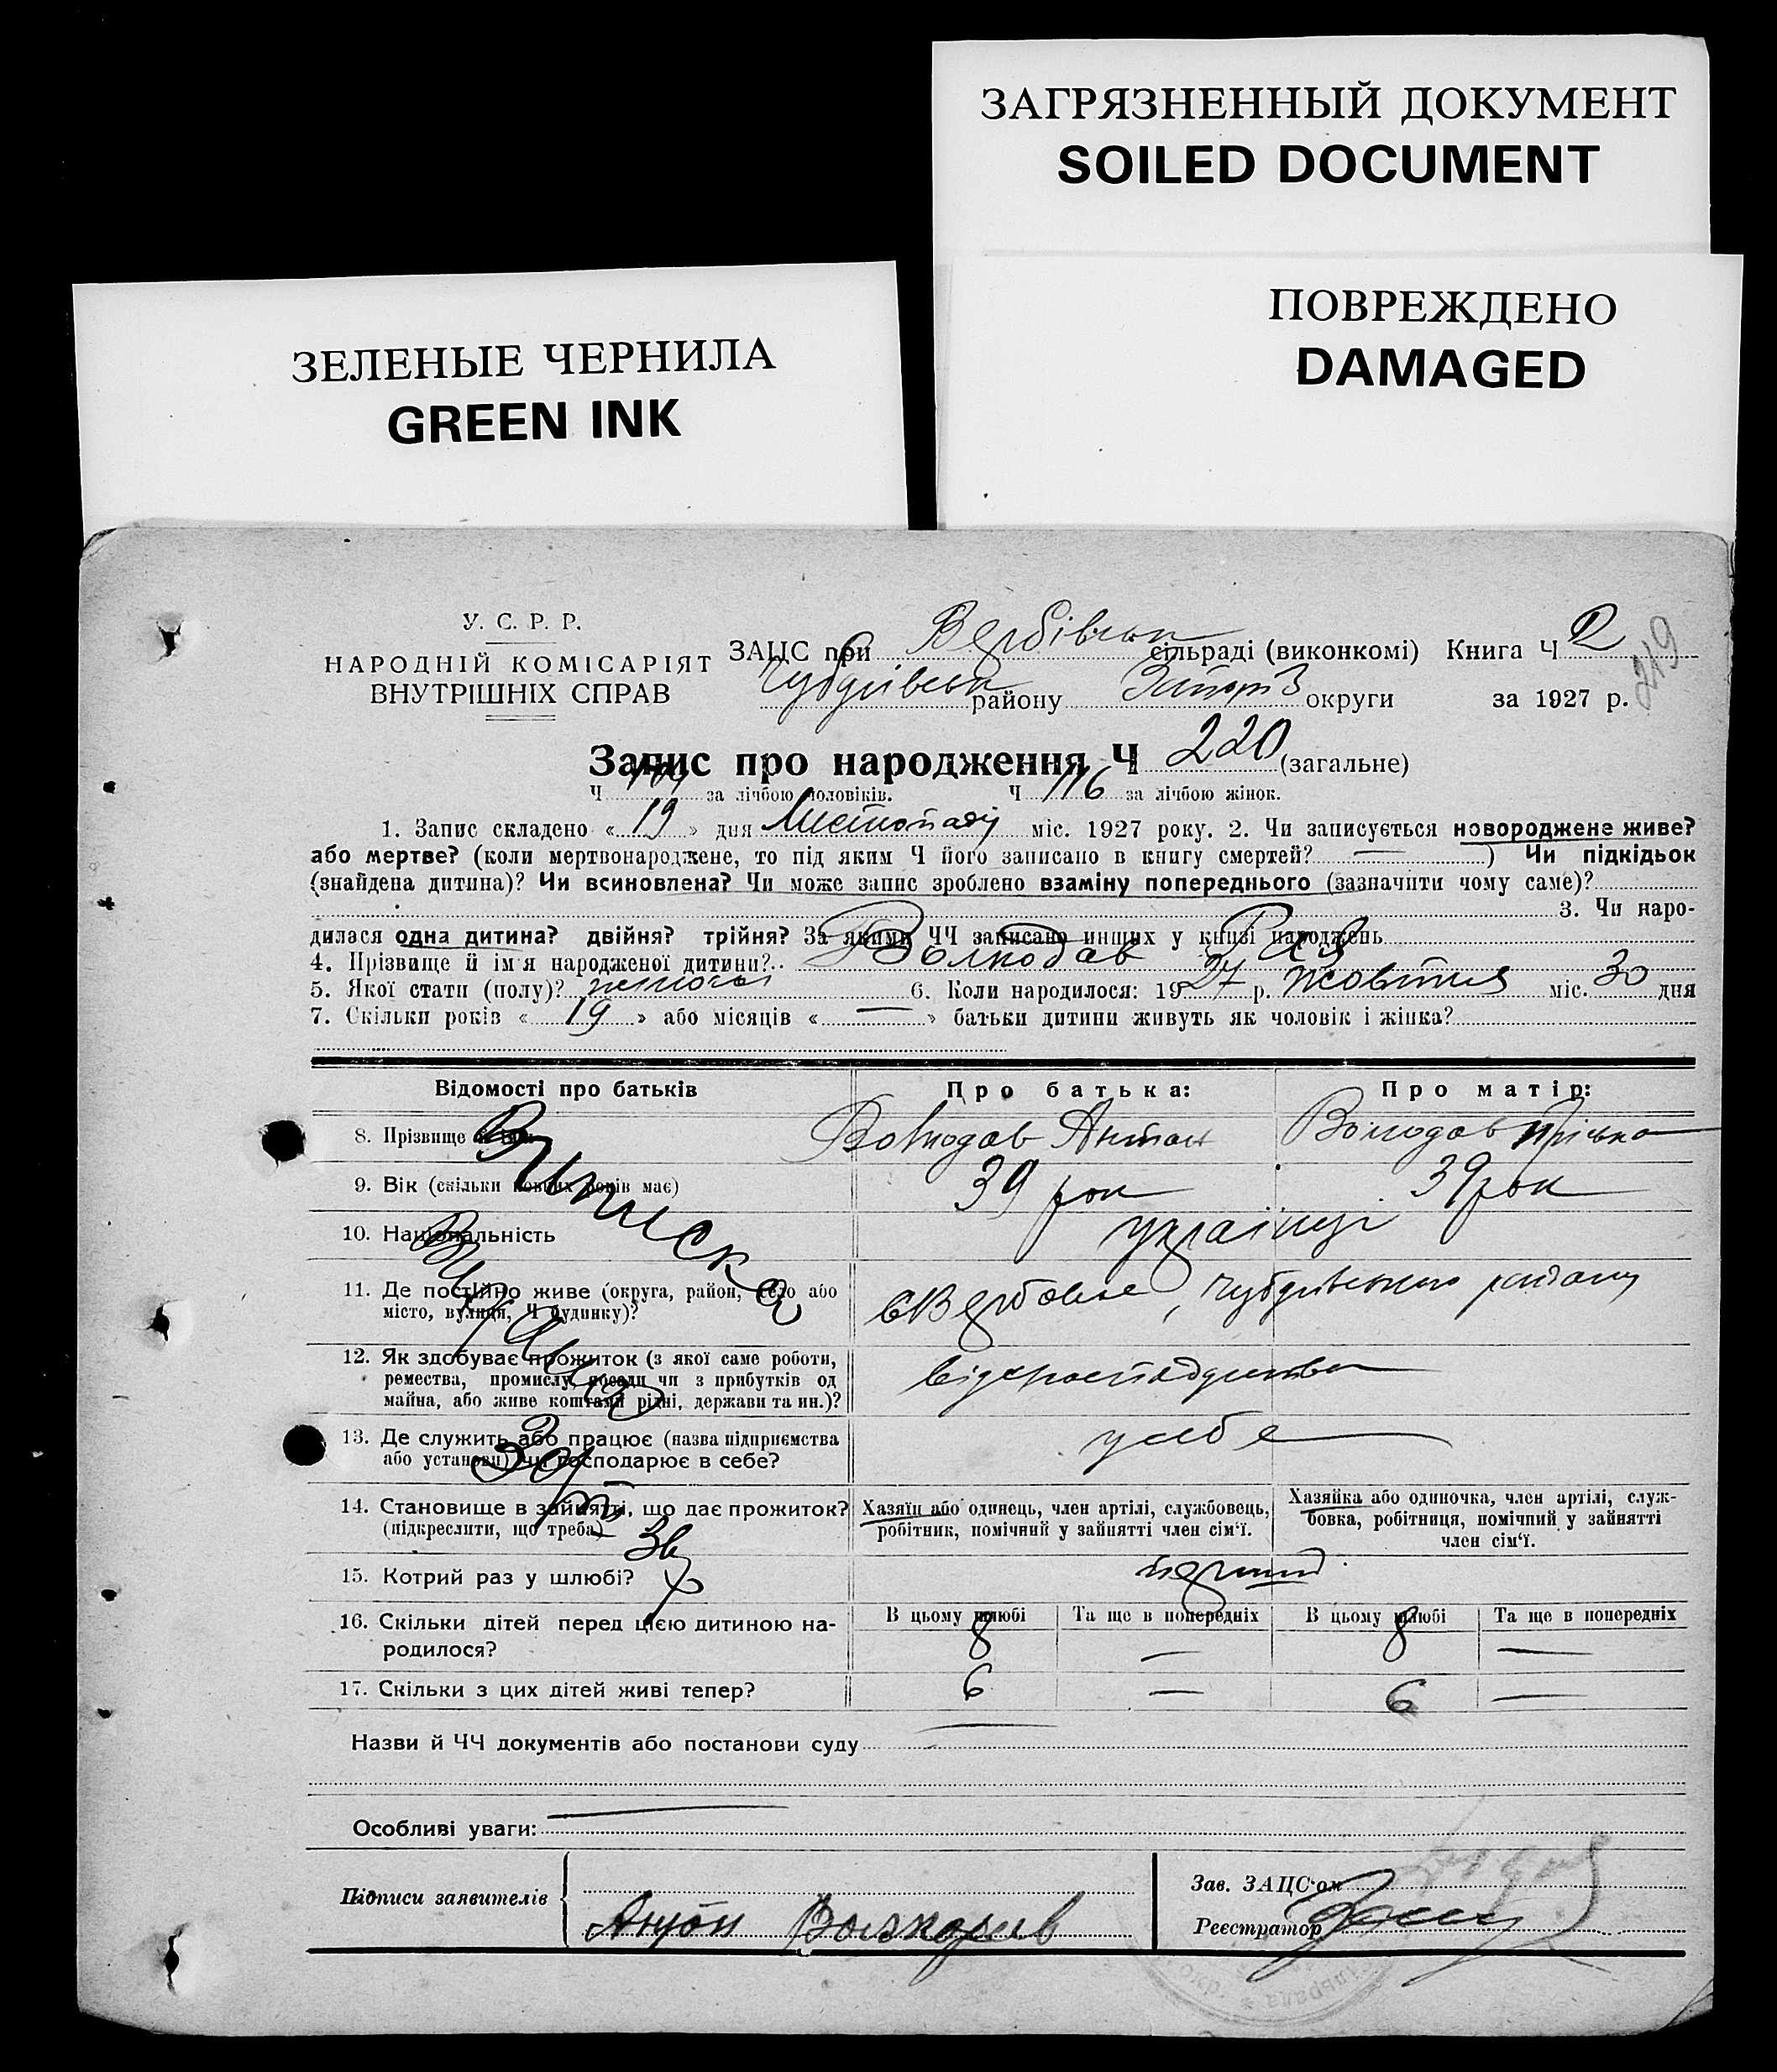 ЗАГРЯЗНЕННЫЙ ДОКУМЕНТ
SOILED DOCUMENT
ПОВРЕЖДЕНО
DAMAGED
ЗЕЛЕНЫЕ ЧЕРНИЛА
GREEN INK
У. С. Р. Р.
НАРОДНІЙ КОМІСАРІЯТ
ВНУТРІШНІХ СПРАВ
ЗАЦС при Вербівськ сільраді (виконкомі) Книга Ч
219
Чуднівськ району округи за 1927 р.
Запис про народження Ч 220 (загальне)
Ч 104 за лічбою чоловіків. Ч 116 за лічбою жінок.
1. Запис складено « 19 » дня Листопаду міс. 1927 року. 2. Чи записується новороджене живе?
або мертве? (коли мертвонароджене, то під яким Ч його записано в книгу смертей? — ) Чи підкідьок
(знайдена дитина)? Чи всиновлена? Чи може запис зроблено взаміну попереднього (зазначити чому саме)?
3. Чи наро-
дилася одна дитина? двійня? трійня? За якими ЧЧ записано инших у книзі народжень
4. Прізвище й ім'я народженої дитини? Волкодав Рая
5. Якої стати (полу)? жіночої 6. Коли народилося: 1927 р. жовтня міс. 30 дня
7. Скільки років « 19 » або місяців « — » батьки дитини живуть як чоловік і жінка?
Відомості про батьків Про батька: Про матір:
8. Прізвище й ім'я Вовкодав Антон Волкодав Пріська
9. Вік (скільки повних років має) 39 рок 39 рок
10. Національність українці
11. Де постійно живе (округа, район, село або
місто, вулиця, Ч будинку)?
с Вербовка, Чуднівського району
12. Як здобуває прожиток (з якої саме роботи,
ремества, промислу, посади чи з прибутків од
майна, або живе коштами рідні, держави та ин.)?
13. Де служить або працює (назва підприємства
або установи) чи господарює в себе?
у себе
14. Становище в зайнятті, що дає прожиток?
(підкреслити, що треба)
Хазяїн або одинець, член артілі, службовець,
робітник, помічний у зайнятті член сім'ї.
Хазяйка або одиночка, член артілі, служ-
бовка, робітниця, помічний у зайнятті
член сім'ї.
15. Котрий раз у шлюбі? перший
16. Скільки дітей перед цією дитиною на-
родилося?
В цьому шлюбі Та ще в попередніх В цьому шлюбі Та ще в попередніх
8 — 8 —
17. Скільки з цих дітей живі тепер? 6 — 6 —
Виписка
Видана
Назви й ЧЧ документів або постанови суду —
Особливі уваги: —
Підписи заявителів
Антон Волкодав
Зав. ЗАЦС'ом
Реєстратор